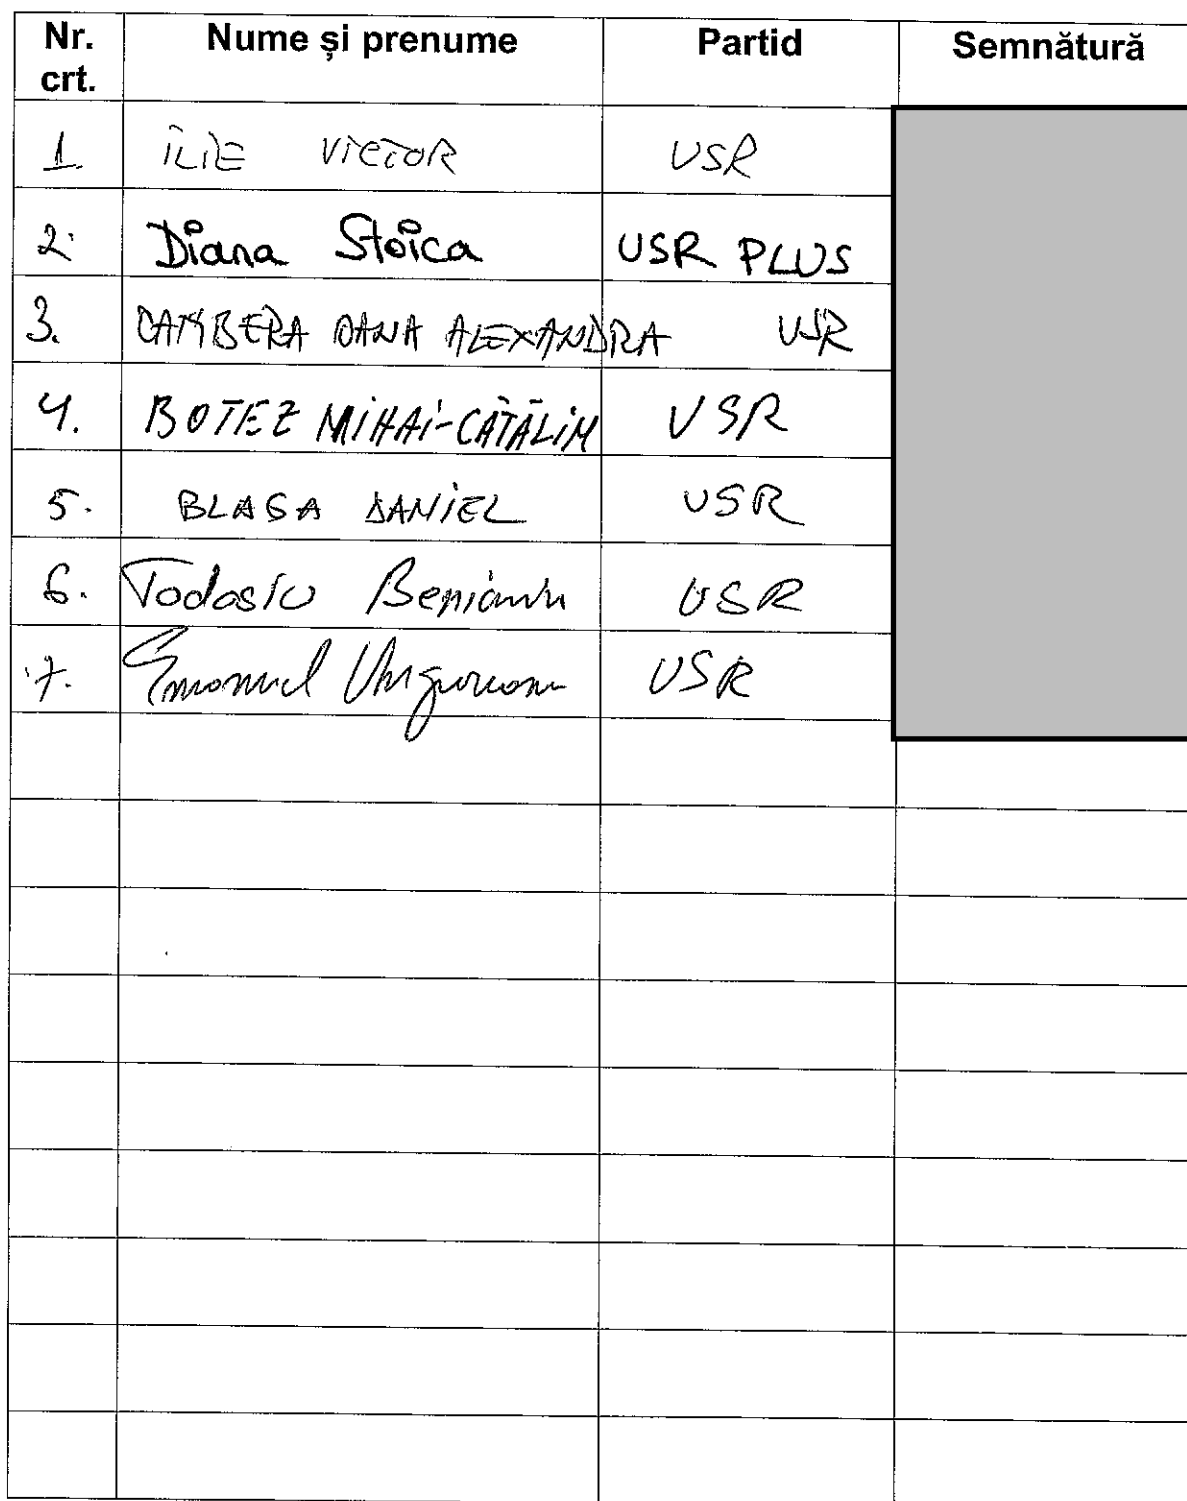 Nr. crt. Nume și prenume Partid Semnătură
1. ILIE VICTOR USR
2. Diana Stoica USR PLUS
3. CAMBERA OANA ALEXANDRA USR
4. BOTEZ MIHAI-CĂTĂLIN USR
5. BLAGA DANIEL USR
6. Todosiu Beniamin USR
7. Emanuel Ungureanu USR